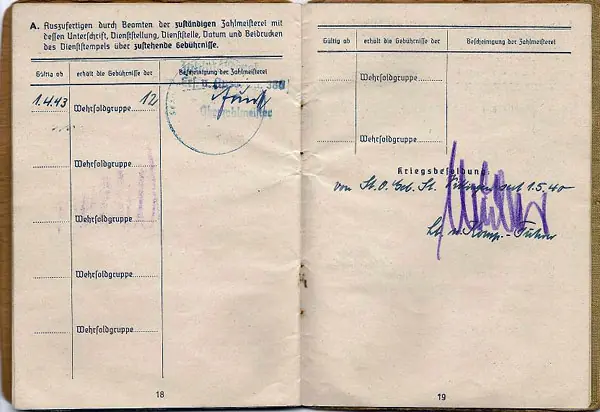 A. Auszufertigen durch Beamten der zuständigen Zahlmeisterei mit
dessen Unterschrift, Dienststellung, Dienststelle, Datum und Beidrucken
des Dienststempels über zustehende Gebührnisse.
Gültig ab
erhält die Gebührnisse der
Bescheinigung der Zahlmeisterei
1.4.43
Wehrsoldgruppe 12
Oberzahlmeister
Wehrsoldgruppe
Wehrsoldgruppe
Wehrsoldgruppe
Wehrsoldgruppe
18
Gültig ab
erhält die Gebührnisse der
Bescheinigung der Zahlmeisterei
Wehrsoldgruppe
Wehrsoldgruppe
Kriegsbesoldung
von St.O. Geb. St. seit 1.5.40
Lt. u. Komp.-Führer
19